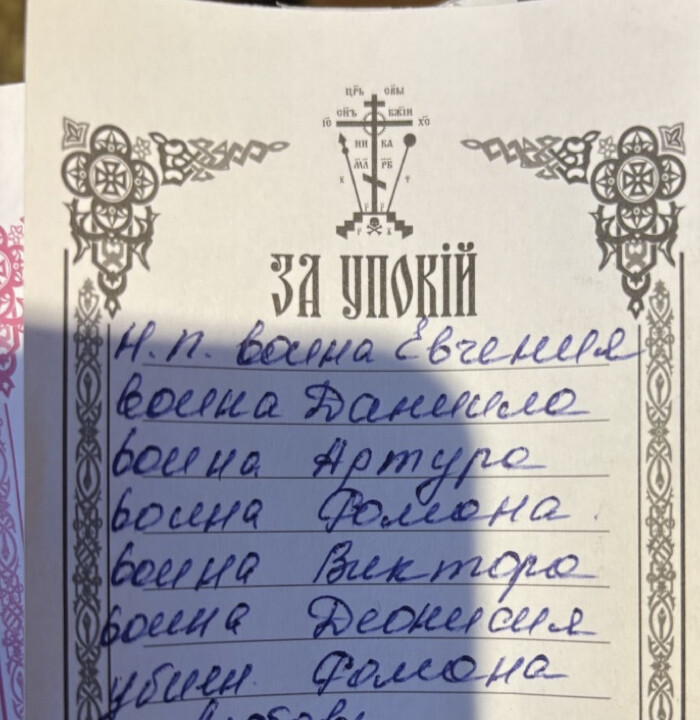 ЦР҃Ь СВ҃Ы
СН҃Ъ БЖ҃ІИ
ІС҃ ХС҃
НИ КА
МЛ РБ
К Т
Г Г
Г А
ЗА УПОКІЙ
Н.п. воина Евгения
воина Даниила
воина Артура
воина Романа
воина Виктора
воина Деонисия
убиен. Романа